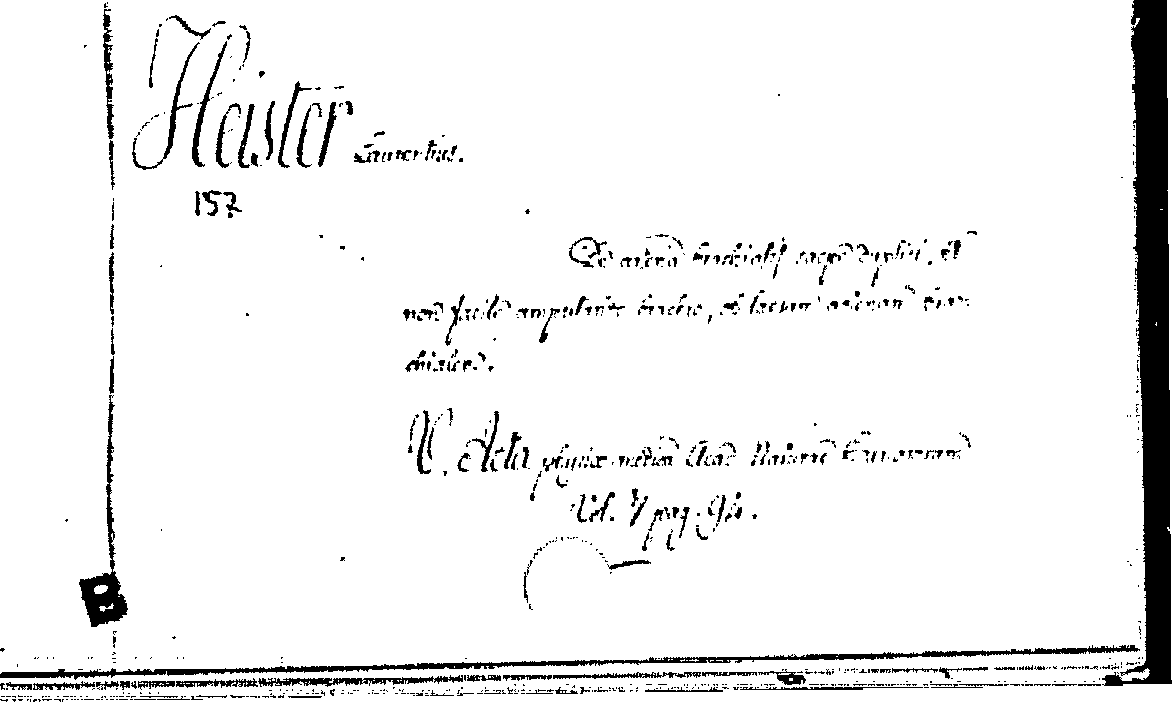 Heister Laurentius.
157
De arteria brachiali saepe duplici, et
non facile amputando brachio, ob laesam arteriam bra-
chialem.
V. Acta physico medica Acad Naturae Curiosorum
Vol. V pag. 94.
B